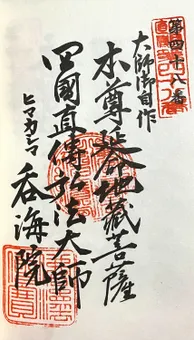 第四十八番
大師御自作
本尊 地蔵菩薩
四國直傳弘法大師
ヒマカシマ
呑海院